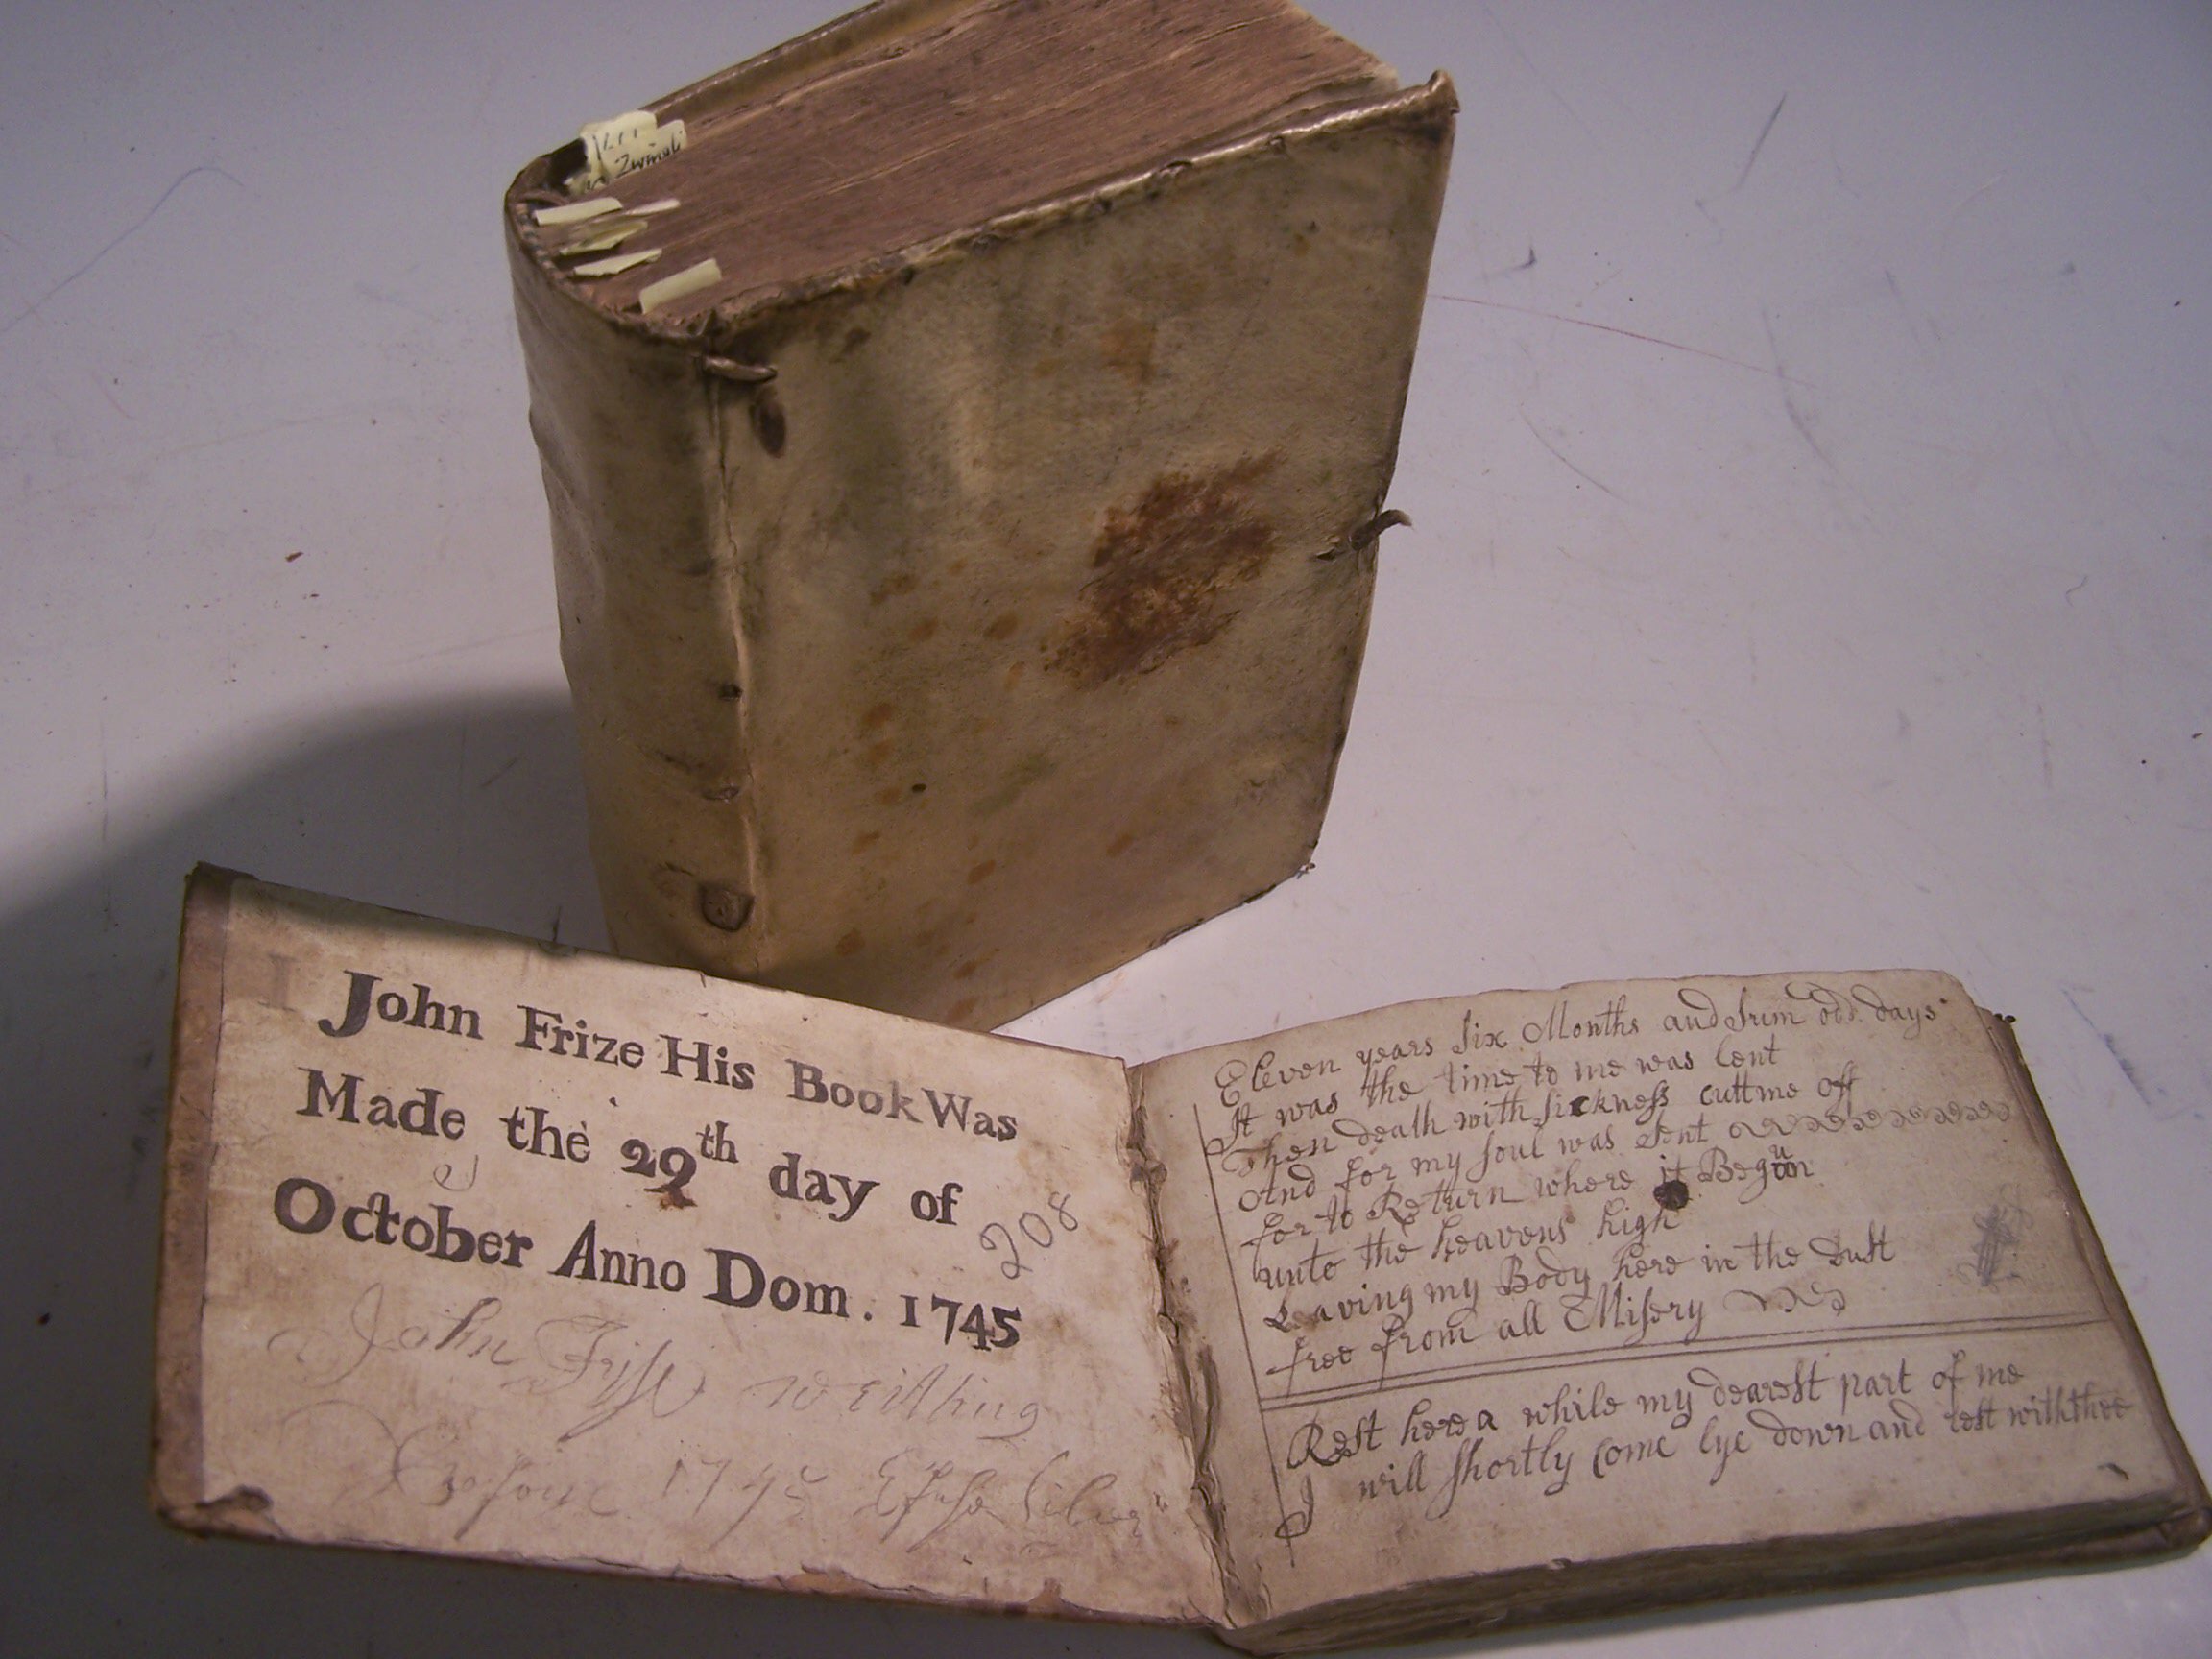 Zwingli
John Frize His Book Was
Made the 29th day of
October Anno Dom. 1745
208
John Fryse writting
1745
Eleven years six Months and odd days
It was the time to me was lent
Then death with sickness cutt me off
And for my soul was sent
for to Return where it Begun
unto the heavens high
Leaving my Body here in the dust
free from all Misery
Rest here a while my dearest part of me
I will shortly come lye down and rest with thee